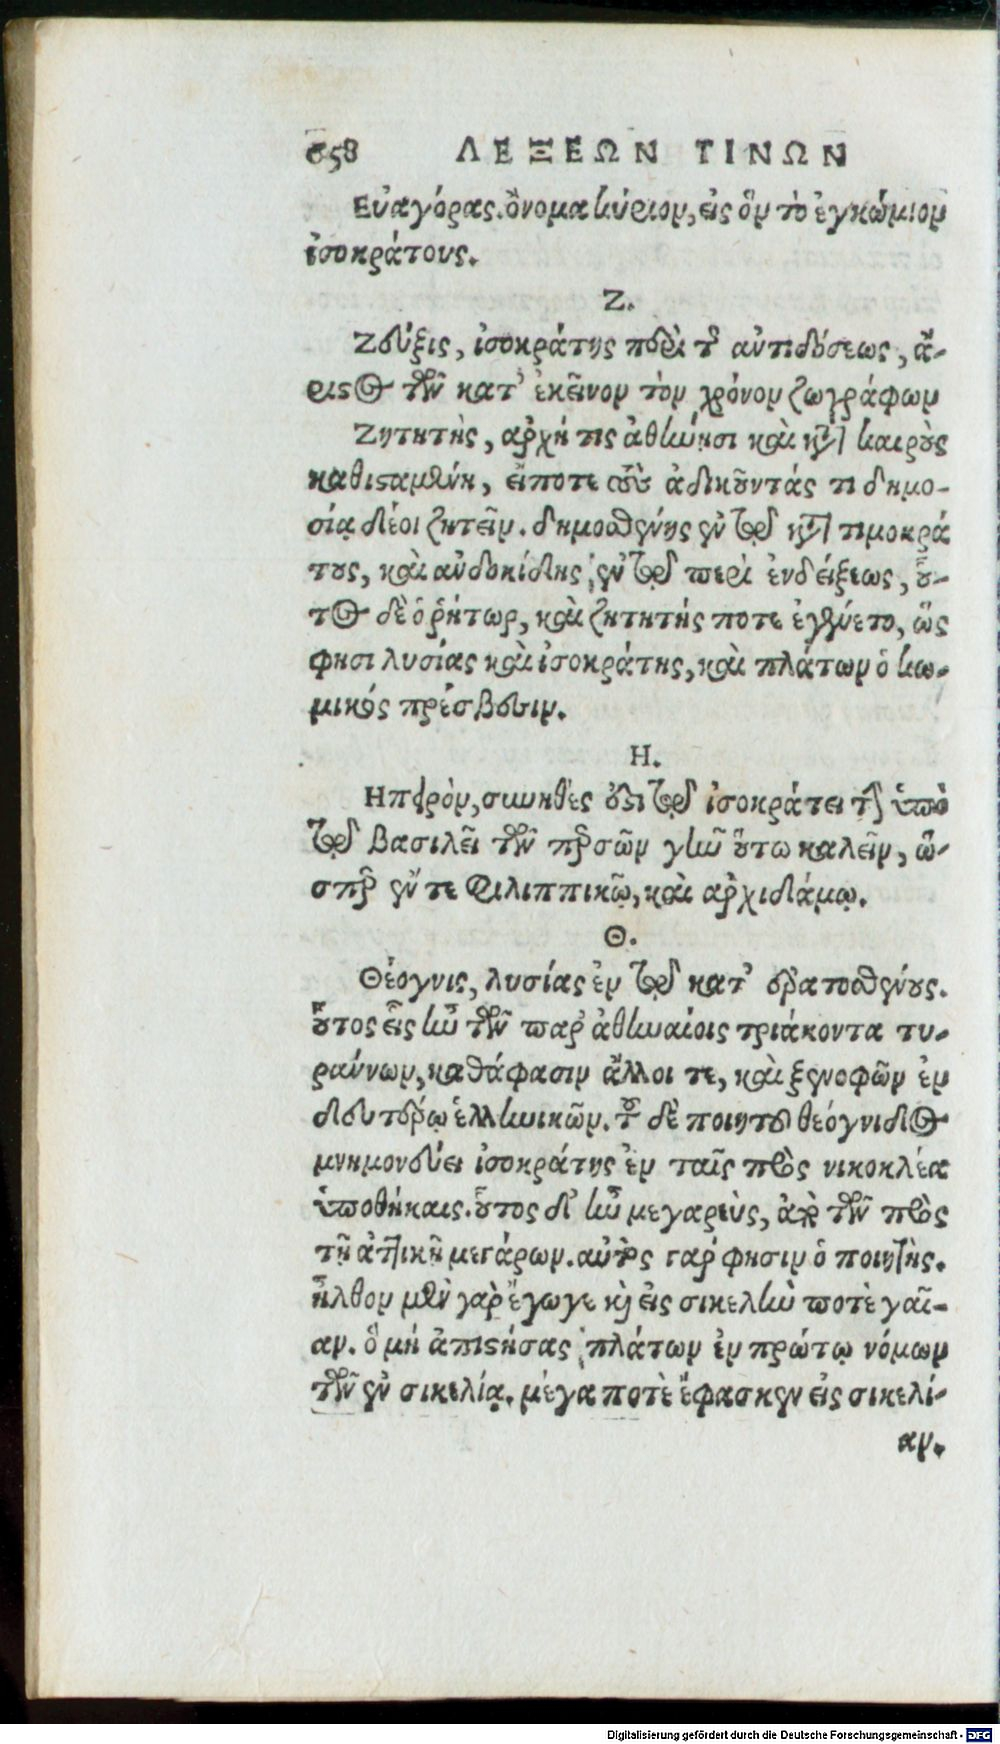 658 ΛΕΞΕΩΝ ΤΙΝΩΝ
Εὐαγόρας. ὄνομα κύριον, εἰς ὃν τὸ ἐγκώμιον
ἰσοκράτους.
Ζ.
Ζεύξις, ἰσοκράτης περὶ τῆς ἀντιδόσεως, ἄ-
ριστος τῶν κατ' ἐκεῖνον τὸν χρόνον ζωγράφων
Ζητητὴς, ἀρχή τις ἀθήνησι καὶ κατὰ καιρὺς
καθισταμένη, εἴποτε τοὺς ἀδικοῦντάς τι δημο-
σίᾳ δέοι ζητεῖν. δημοσθένης ἐν τῷ κατὰ τιμοκρά
τους, καὶ ἀνδοκίδης, ἐν τῷ περὶ ἐνδείξεως, οὗ-
τος δὲ ὁ ῥήτωρ, καὶ ζητητής ποτε ἐγένετο, ὥς
φησι λυσίας καὶ ἰσοκράτης, καὶ πλάτων ὁ κω-
μικός πρέσβεσιν.
Η.
Ηπειρον, συνηθὲς ἐστι τῷ ἰσοκράτει τὴν ὑπὸ
τῷ βασιλεῖ τῶν περσῶν γῆν οὕτω καλεῖν, ὥ-
σπερ ἔν τε Φιλιππικῷ, καὶ ἀρχιδάμῳ.
Θ.
Θέογνις, λυσίας ἐν τῷ κατ' ἐρατοσθένους.
οὗτος εἷς ἦν τῶν παρ' ἀθηναίοις τριάκοντα τυ-
ράννων, καθάφασιν ἄλλοι τε, καὶ ξενοφῶν ἐν
δευτέρῳ ἑλληνικῶν. τοῦ δὲ ποιητοῦ θεόγνιδος
μνημονεύει ἰσοκράτης ἐν ταῖς πρὸς νικοκλέα
ὑποθήκαις. οὗτος δ' ἦν μεγαρεὺς, ἀπὸ τῶν πρὸς
τῇ ἀττικῇ μεγάρων. αὐτὸς γάρ φησιν ὁ ποιητὴς.
ἦλθον μὲν γὰρ ἔγωγε καὶ εἰς σικελὴν ποτὲ γαῖ-
αν. ὃ μὴ ἀπιστήσας πλάτων ἐν πρώτῳ νόμων
τῶν ἐν σικελίᾳ. μέγα ποτὲ ἔφασκεν εἰς σικελί-
αν.
Digitalisierung gefördert durch die Deutsche Forschungsgemeinschaft - DFG